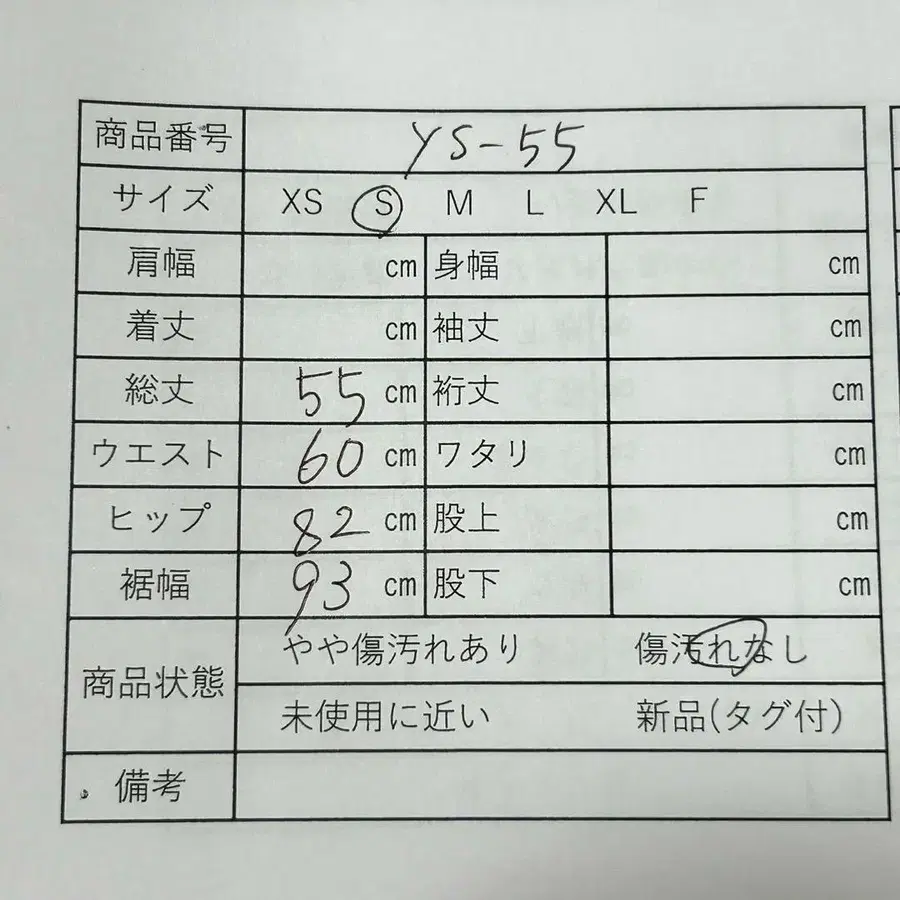 商品番号 YS-55
サイズ XS S M L XL F
肩幅 cm 身幅 cm
着丈 cm 袖丈 cm
総丈 55 cm 裄丈 cm
ウエスト 60 cm ワタリ cm
ヒップ 82 cm 股上 cm
裾幅 93 cm 股下 cm
商品状態 やや傷汚れあり 傷汚れなし
未使用に近い 新品(タグ付)
備考